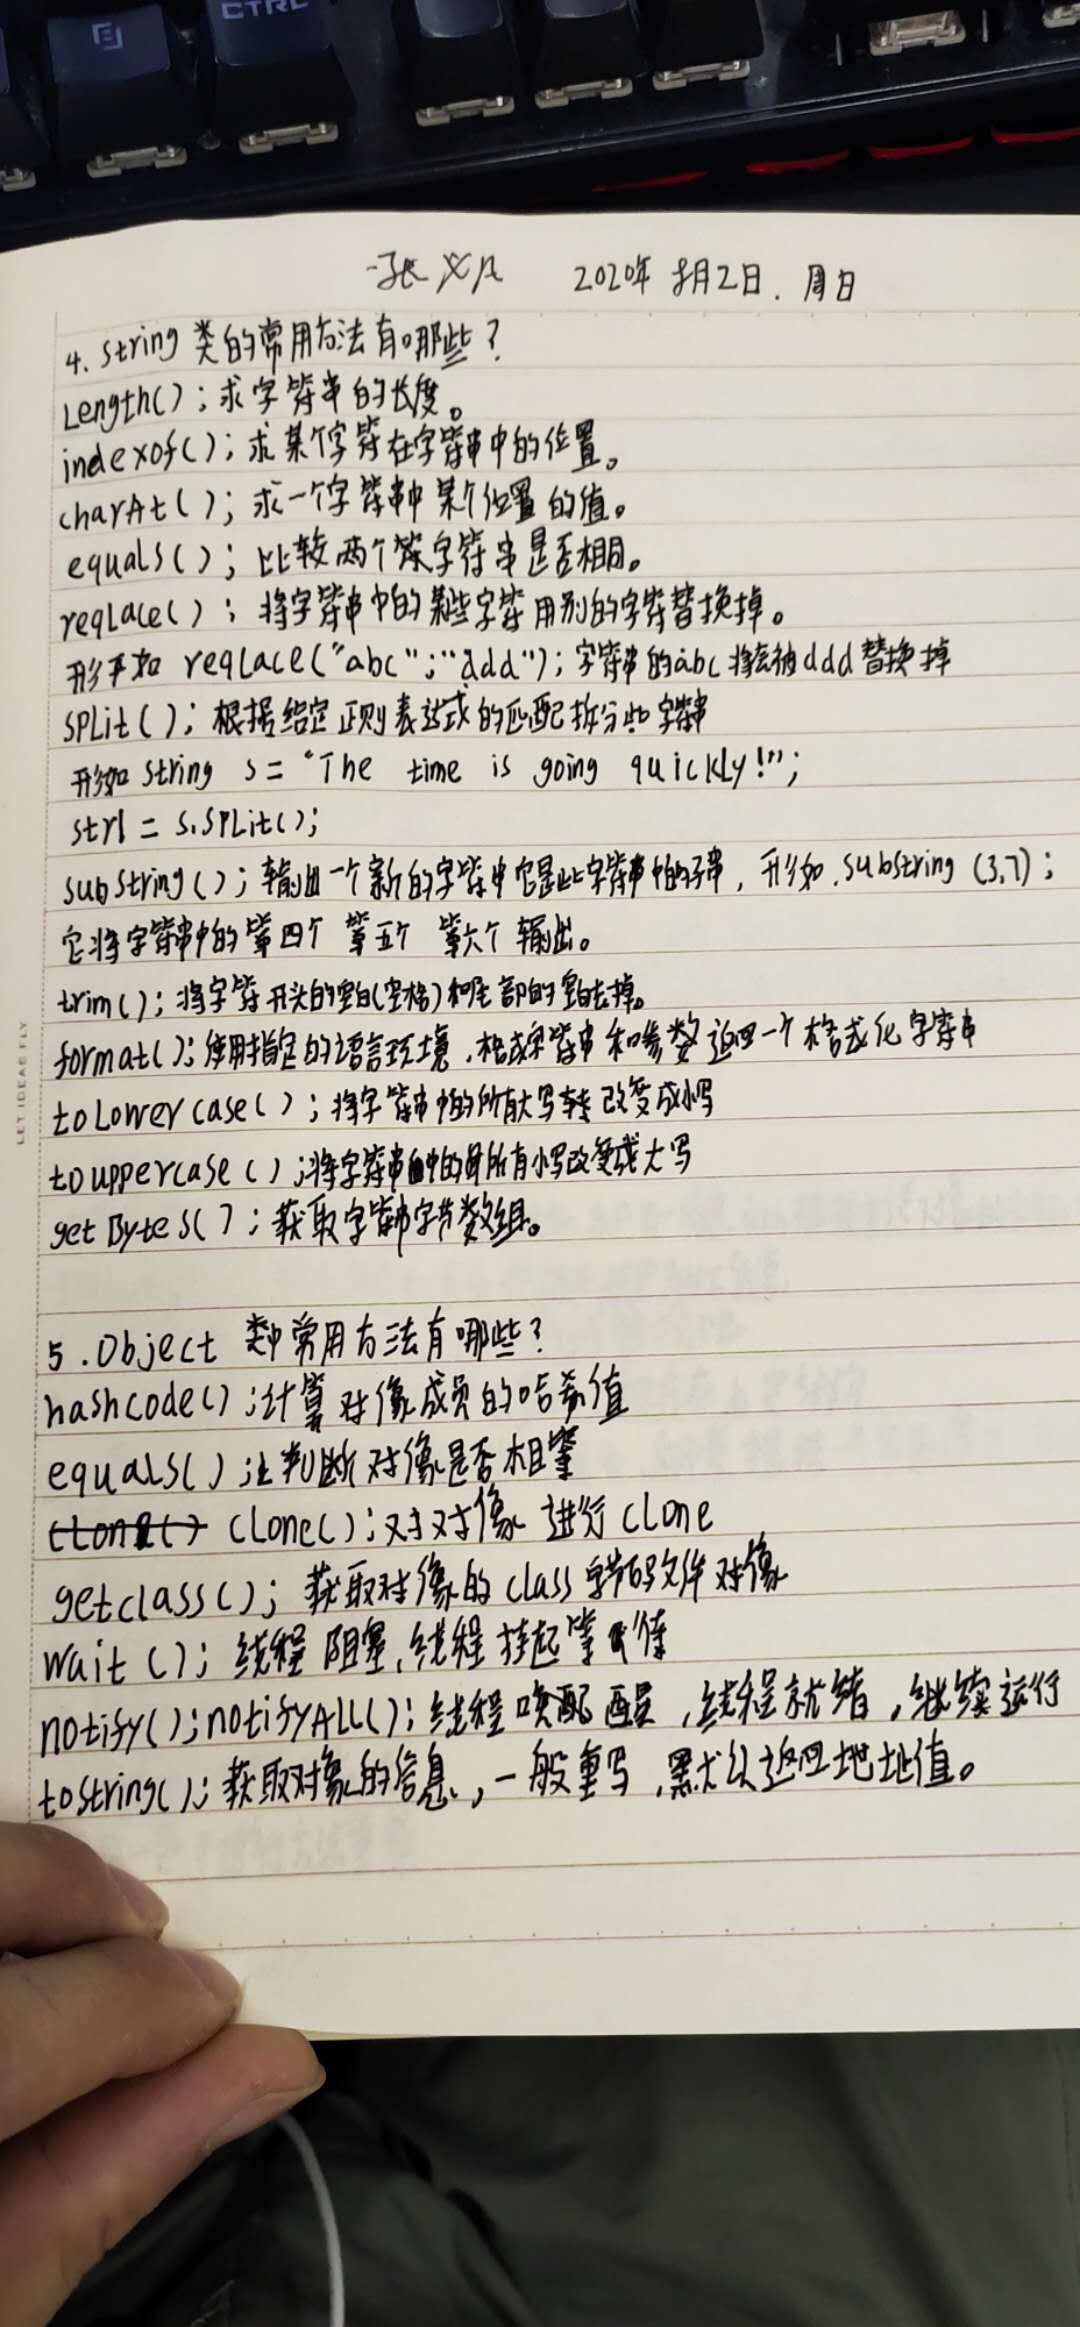 CTRL
张义凡 2020年8月2日.周日
4. String 类的常用方法有哪些?
Length(); 求字符串的长度。
indexof(); 求某个字符在字符串中的位置。
charAt(); 求一个字符串中某个位置的值。
equals(); 比较两个字符串是否相同。
reqlace(); 将字符串中的某些字符用别的字符替换掉。
形如 reqlace("abc";"ddd"); 字符串的abc将会被ddd替换掉
SPLit(); 根据给定正则表达式的匹配拆分此字符串
形如 String s = "The time is going quickLy!";
str1 = s.SPLit();
substring(); 输出一个新的字符串它是此字符串中的子串, 形如.substring (3,7);
它将字符串中的第四个 第五个 第六个 输出。
trim(); 将字符开头的空白(空格)和尾部的空白去掉。
format(); 使用指定的语言环境.格式字符串和参数返回一个格式化字符串
toLowercase(); 将字符串中的所有大写转改变成小写
touppercase(); 将字符串中的所有小写改变成大写
getBytes(); 获取字符串字节数组。
LET IDEAS FLY
5.Object 类中常用方法有哪些?
hashcode(); 计算对像成员的哈希值
equals(); 判断对像是否相等
cLone() cLone(); 对对像 进行 cLone
getclass(); 获取对像的class字节码文件对像
wait(); 线程阻塞,线程挂起等待
notify();notifyALL(); 线程唤醒,线程就绪,继续运行
tostring(); 获取对象的信息,一般重写,默认返回地址值。